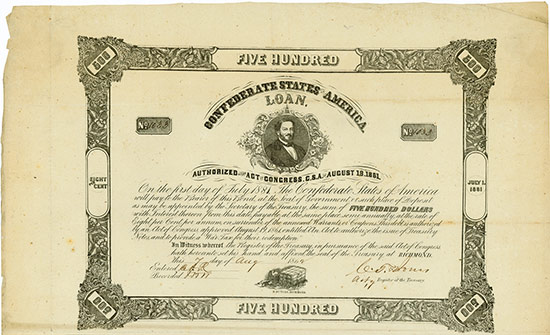 FIVE HUNDRED
500
500
CONFEDERATE STATES AMERICA
LOAN,
No 1633
No 1633
AUTHORIZED BY ACT OF CONGRESS, C.S.A. OF AUGUST 19, 1861.
EIGHT
CENT
JULY 1.
1881
On the first day of July 1881, The Confederate States of America
will pay to the Bearer of this Bond, at the Seat of Government or such place of Deposit
as may be appointed by the Secretary of the Treasury, the sum of FIVE HUNDRED DOLLARS
with Interest thereon from this date, payable at the same place semi annually, at the rate of
Eight per Cent per annum, on surrender of the annexed Warrants or Coupons. This Debt is authorized
by an Act of Congress approved August 19, 1861, entitled An Act to authorize the issue of Treasury
Notes, and to provide a War Tax for their redemption.
In Witness whereof the Register of the Treasury, in pursuance of the said Act of Congress
hath hereunto set his hand and affixed the seal of the Treasury at RICHMOND,
This day of Aug 186
Entered
Recorded
Register of the Treasury
500
500
FIVE HUNDRED